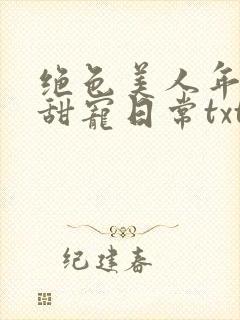 绝色美人年
甜宠日常txt
纪建春